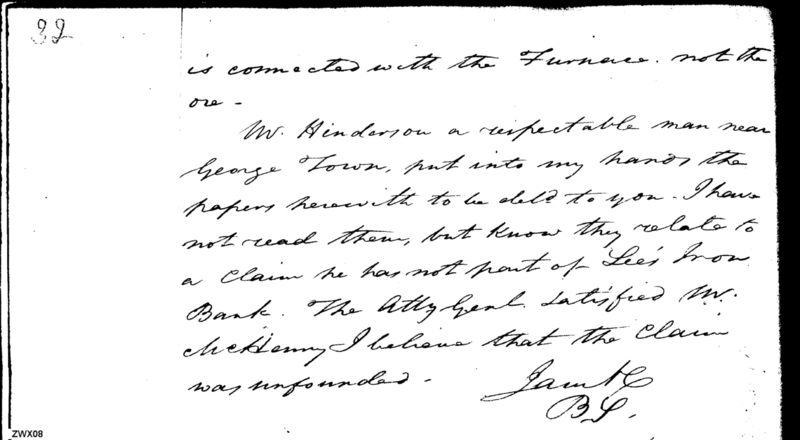 32
is connected with the Furnace. not the
ore -
Mr. Hinderson a respectable man near
George Town, put into my hands the
papers herewith to be deld to you. I have
not read them, but know they relate to
a Claim he has not part of Lee's Iron
Bank. The Atty Genl. satisfied Mr.
McHenry I believe that the Claim
was unfounded -
I am &C
B S.
ZWX08